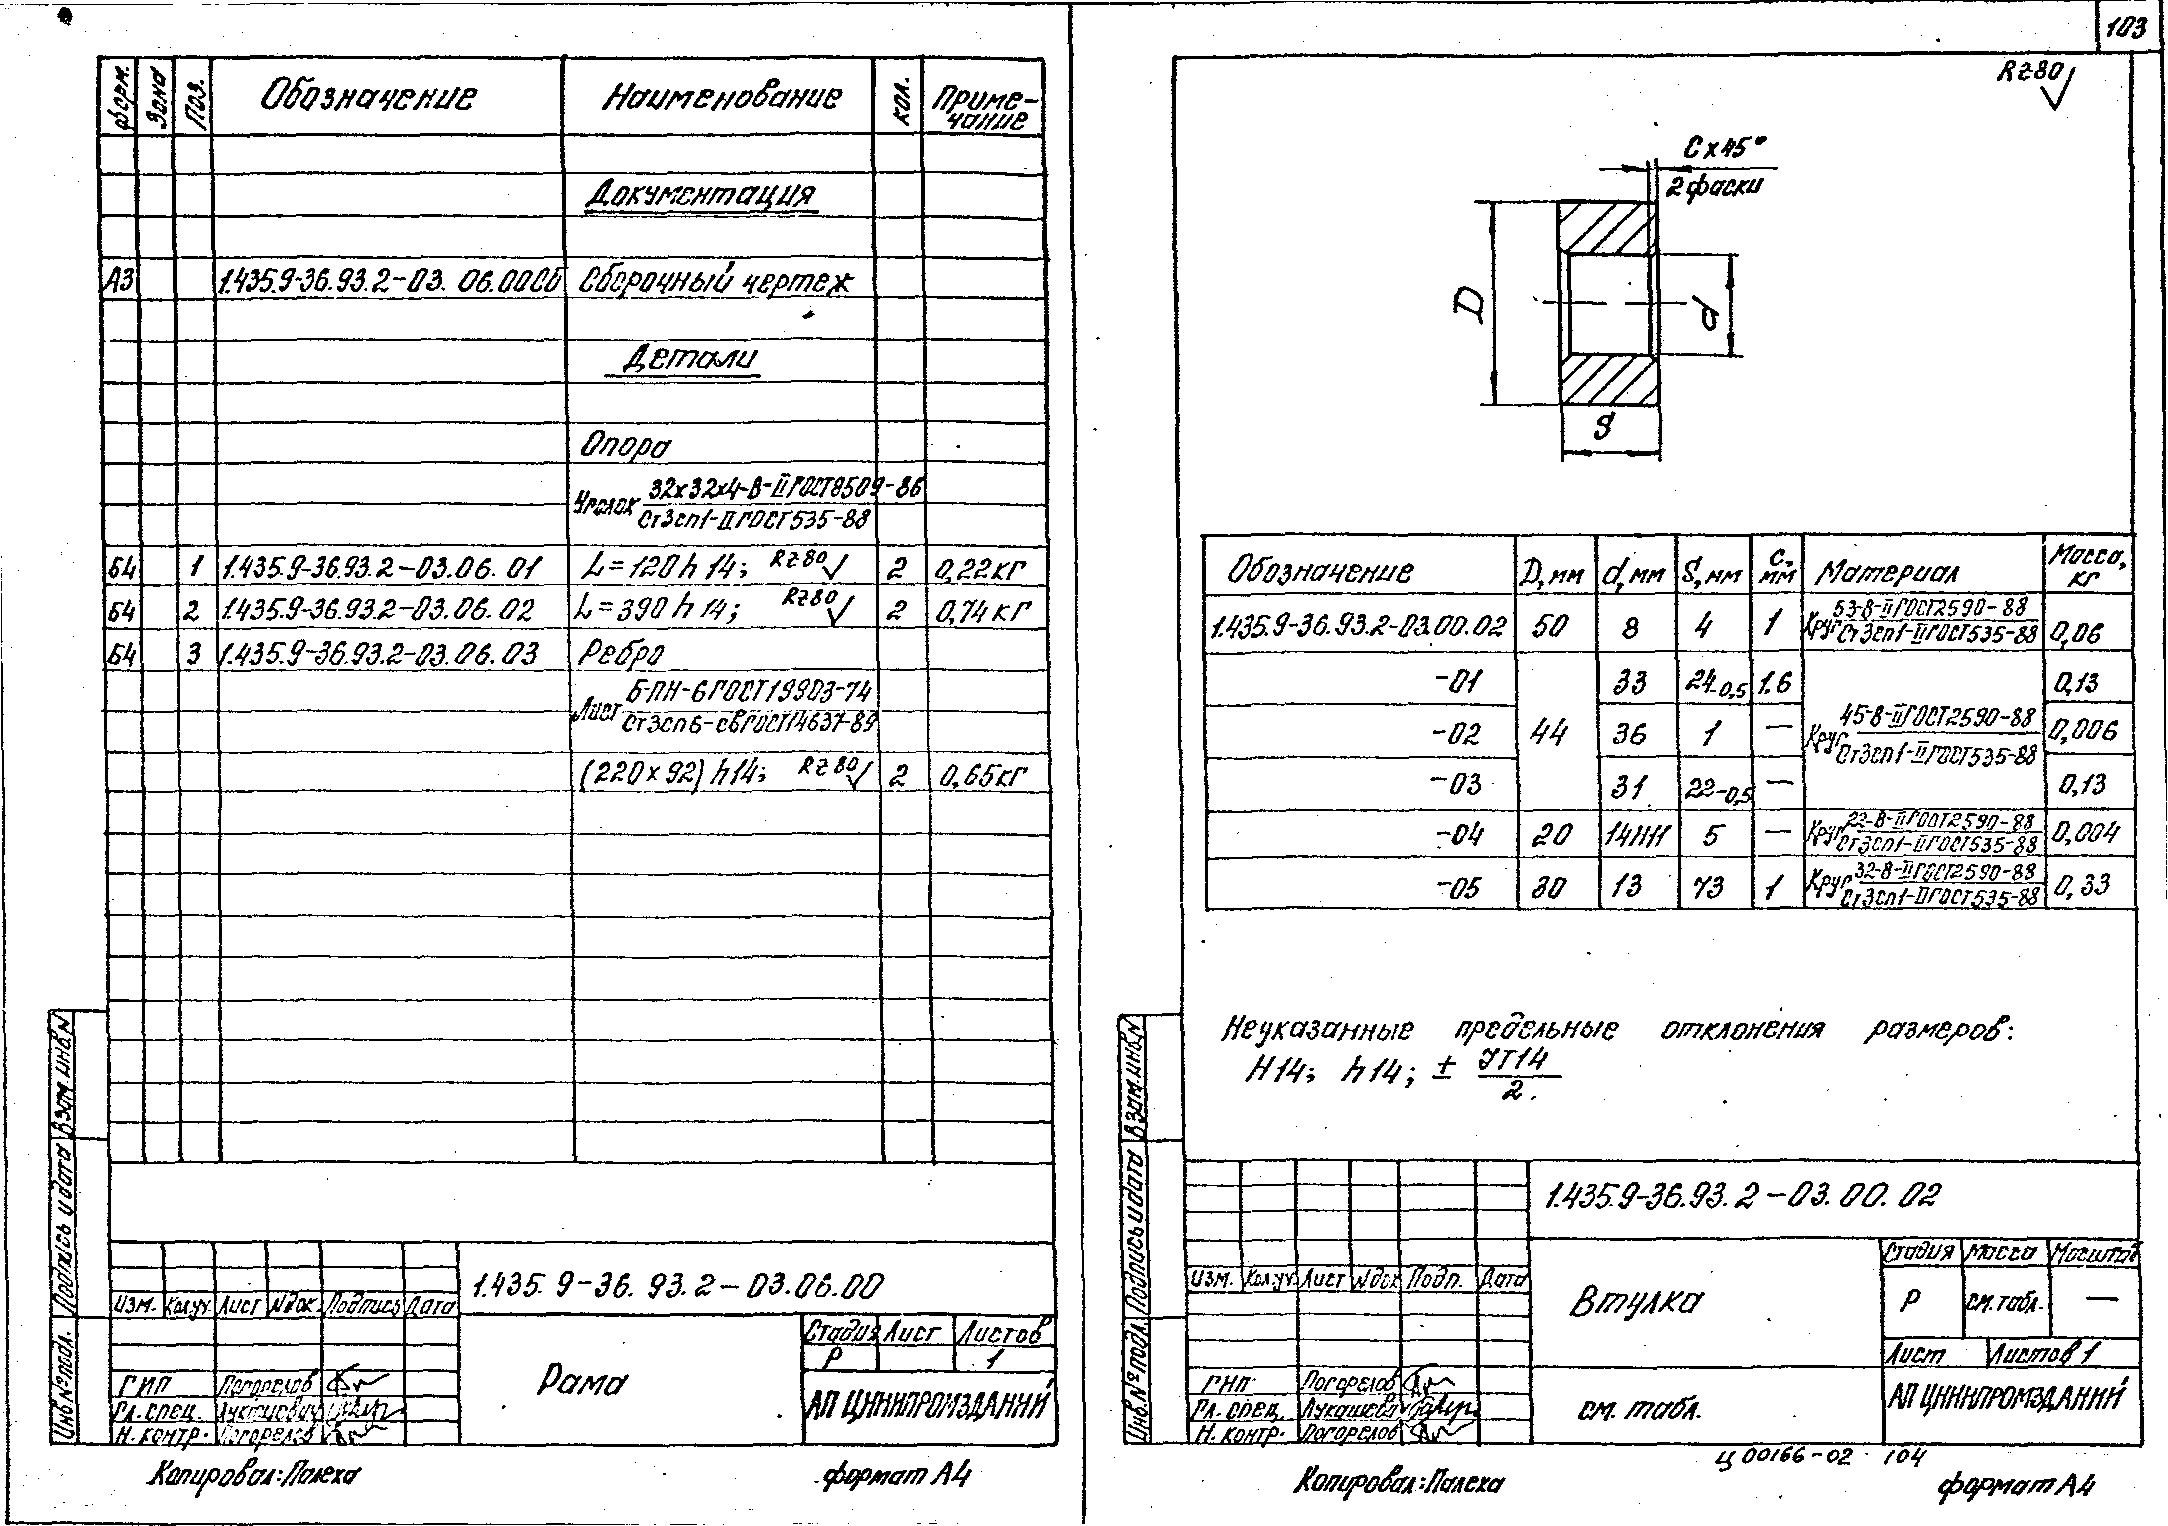 103
Форм. Зона Поз. Обозначение Наименование Кол. Приме-
чание
Документация
А3 1.435.9-36.93.2-03.06.00СБ Сборочный чертеж
Детали
Опора
Уголок 32х32х4-В-II ГОСТ 8509-86
Ст3сп1-II ГОСТ 535-88
Б4 1 1.435.9-36.93.2-03.06.01 L=120 h14; Rz80 2 0,22 кг
Б4 2 1.435.9-36.93.2-03.06.02 L=390 h14; Rz80 2 0,74 кг
Б4 3 1.435.9-36.93.2-03.06.03 Ребро
Лист Б-ПН-6 ГОСТ 19903-74
Ст3сп6-св ГОСТ 14637-89
(220х92) h14; Rz80 2 0,65 кг
Взам.инв.N
Подпись и дата
Инв.№подл.
1.435.9-36.93.2-03.06.00
Изм. Кол.уч Лист Nдок. Подпись Дата
Рама
Стадия Лист Листов
Р 1
ГИП Погорелов
Гл.спец.
Н.контр. Погорелов
АП ЦНИИПРОМЗДАНИЙ
Копировал: Палеха
формат А4
Rz80
Cх45°
2 фаски
D
d
S
Обозначение D, мм d, мм S, мм C, мм Материал Масса, кг
1.435.9-36.93.2-03.00.02 50 8 4 1 Круг 53-В-II ГОСТ 2590-88
Ст3сп1-II ГОСТ 535-88 0,06
-01 33 24-0,5 1.6 0,13
-02 44 36 1 — Круг 45-В-II ГОСТ 2590-88
Ст3сп1-II ГОСТ 535-88 0,006
-03 31 22-0,5 — 0,13
-04 20 14H11 5 — Круг 22-В-II ГОСТ 2590-88
Ст3сп1-II ГОСТ 535-88 0,004
-05 30 13 73 1 Круг 32-В-II ГОСТ 2590-88
Ст3сп1-II ГОСТ 535-88 0,33
Неуказанные предельные отклонения размеров:
H14; h14; ± JT14
2.
Взам.инв.N
Подпись и дата
Инв.№подл.
1.435.9-36.93.2-03.00.02
Изм. Кол.уч Лист Nдок Подп. Дата
Втулка
Стадия Масса Масштаб
Р см.табл. —
Лист Листов 1
ГИП Погорелов
Гл.спец. Лукашевич
Н.контр. Погорелов
см. табл.
АП ЦНИИПРОМЗДАНИЙ
Ц00166-02 104
Копировал: Палеха
формат А4